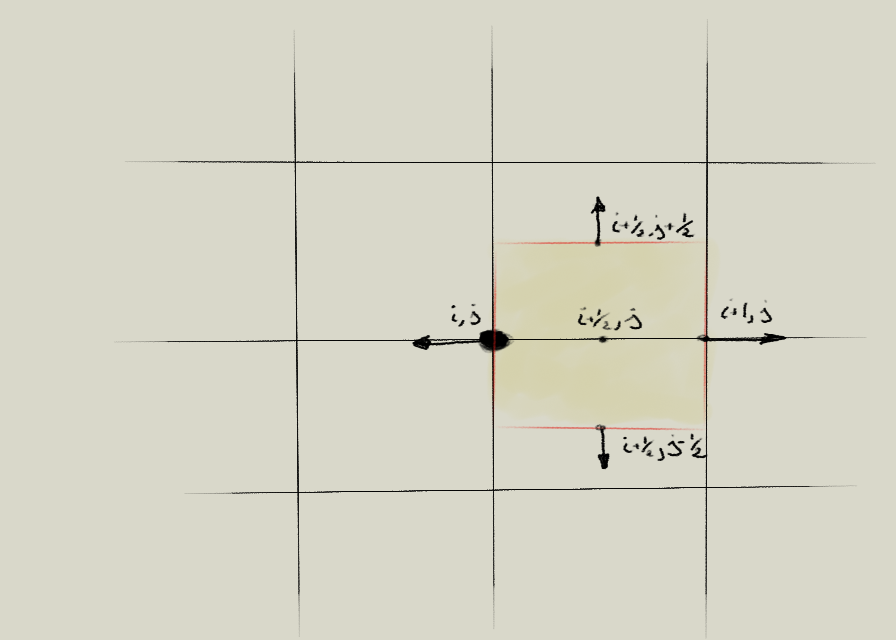 i+½,j+½
i,j
i+½,j
i+1,j
i+½,j-½